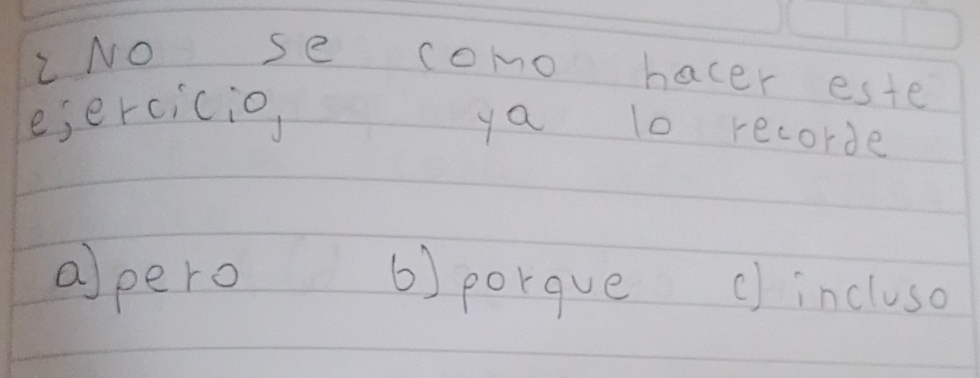 ¿ No se como hacer este
ejercicio, ya lo recorde
a) pero b) porque c) incluso